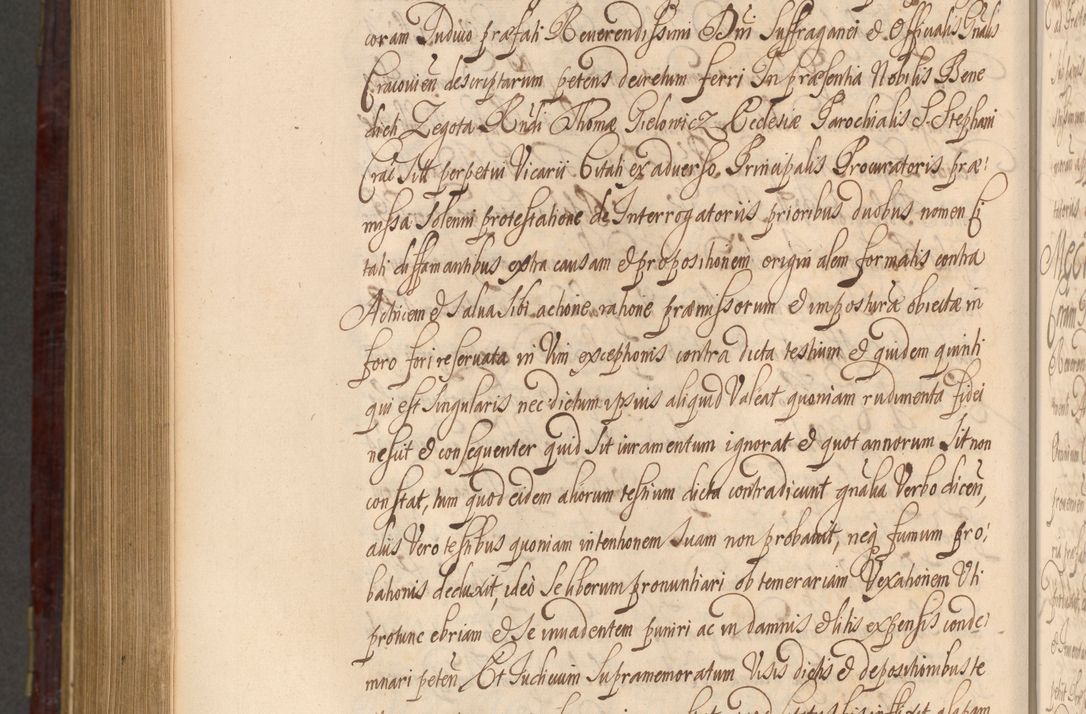 coram Judicio præfati Reverendissimi Dni Suffraganei & Officialis Gnalis
Cracovien descriptarum petens decretum ferri In præsentia Nobilis Bene
dicti Zegota Rndi Thomæ Gielowicz Ecclesiæ Parochialis S. Stephani
Crac Sitt perpetui Vicarii Citati ex adverso Principalis Procuratoris præ:
missa Solenni protestatione de Interrogatoriis prioribus duobus nomen
tati diffamantibus extra causam & propositionem originalem formatis contra
Actricem & Salva Sibi actione ratione præmissorum & imposturæ obiectæ in
foro fori reservata in Vim exceptionis contra dicta testium & quidem quinti
qui est Singularis nec dictum ipsius aliquid Valeat quoniam rudimenta fidei
nescit & consequenter quid Sit iuramentum ignorat & quot annorum Sit non
constat, tum quod eidem aliorum testium dicta contradicunt gnalia Verbo dicen,
aliis Vero testibus quoniam intentionem Suam non probavit, neq fumum pro:
bationis deduxit, ideo Se liberum pronuntiari ob temerariam Vexationem Uti
protunc ebriam & Se invadentem puniri ac in damnis & litis expensis conde:
mnari peten Et Judicium Supramemoratum Visis dictis & depositionibus te